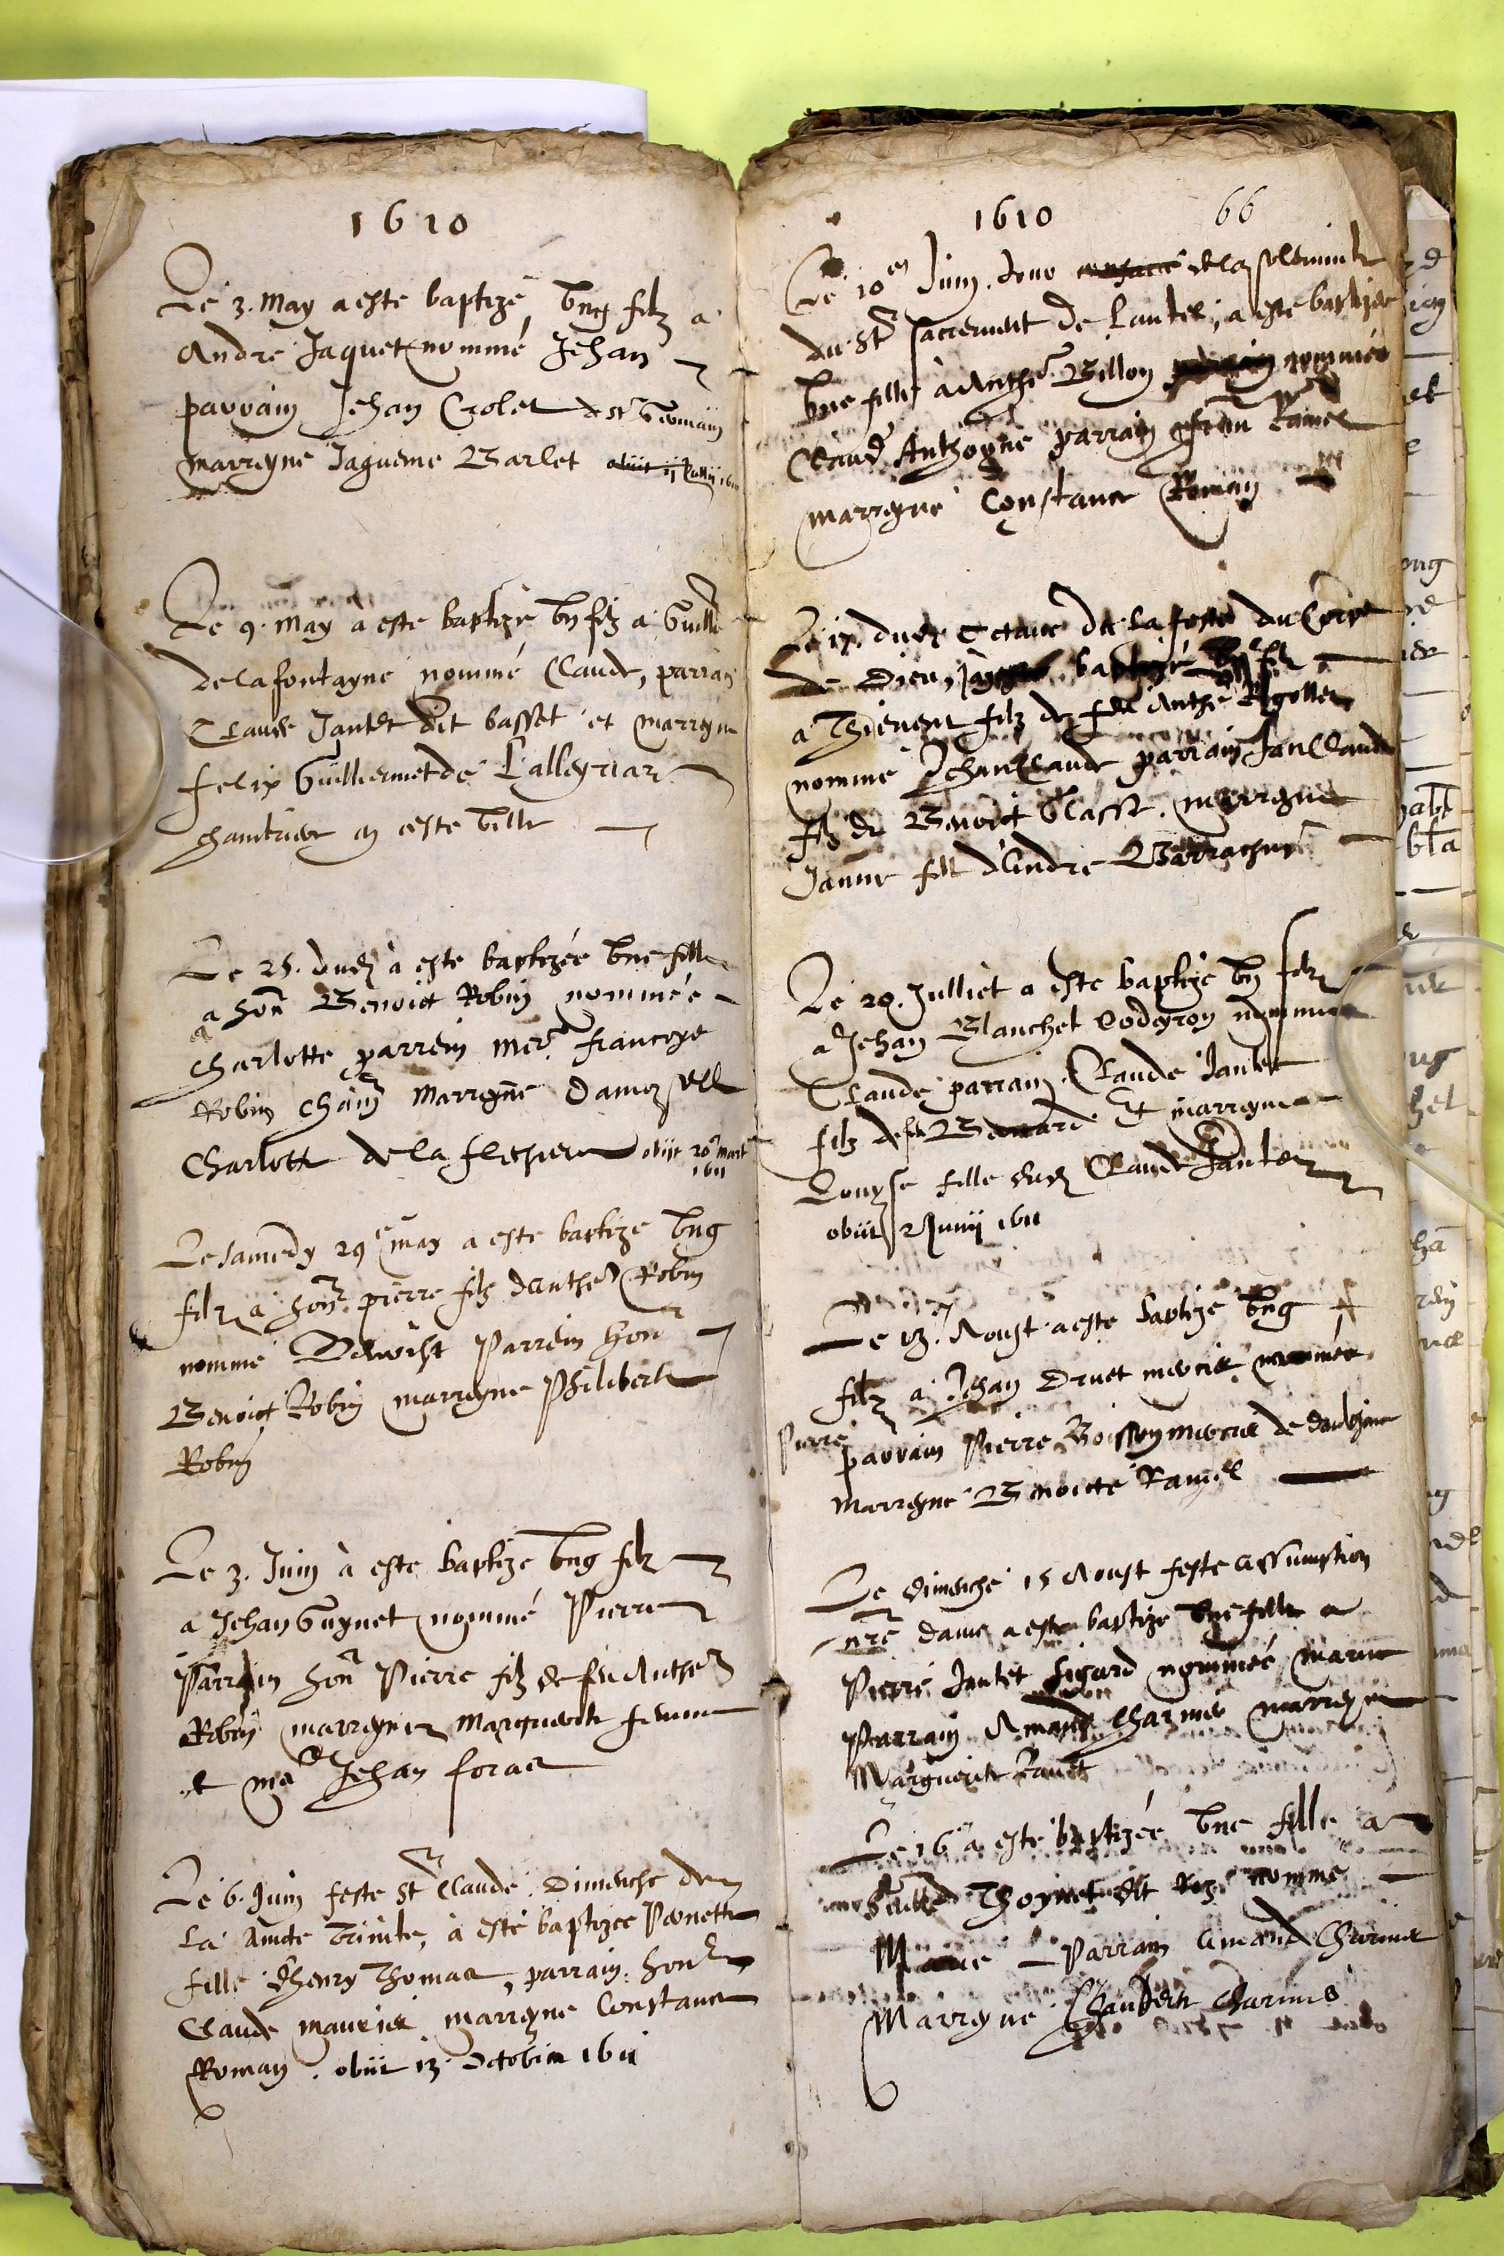 1610
Le 3. May a este baptizé ung filz a
Andre Jaquet nommé Jehan
parrain Jehan Crolet de St Germain
marreyne Jaqueme Barlet obiit
Le 9. May a este baptizé un filz a Guille
delafontayne nommé Claude, parrain
Claude Jantet dit basset et marreyne
felix Guilliermet de Lalleyriat
chambriere en ceste ville
Le 25. dud a este baptizée une fille
a hon Benoict Robin nommée
a
Charlotte parrein Mer francoys
Robin chan marreyne Damoyselle
Charlotte de la flechiere obiit 20 mart
1611
Le samedy 29e may a este baptizé ung
filz a hon. pierre filz d'Anthe Robin
nommé Benoist Parrein hon
Benoict Robin marreyne Philiberte
Robin
Le 3. Juin a este baptizé ung filz
a Jehan Guynet nommé Pierre
Parrain hon Pierre filz de feu Anthe
Robin marreyne Marguerite femme
de ma Jehan foras
Le 6. Juin feste St Claude. Dimenche de
la sainte Trinite, a este baptizee Pernette
fille d'henry Thomas, parrain. hon
Claude maurier marreyne Constance
Roman. obiit 13 Octobris 1611
1610 66
Le 10en Juin. jour de la solemnité
du St sacrement de Lautel, a este baptizée
une fille a Anthe Billon nommée
Claud Anthoyne parrain Ramel
marreyne Constance Roman
Le ix. dud Octave de la feste du Corps
de Dieu, baptizé filz
a Thievent filz de feu Anthe
nommé Jehan Claude parrain Jan Claude
filz de Benoict marreyne
Janne fille d'Andre
Le 20. Julliet a este baptizé un filz
a Jehan Blanchet Codeyron nommé
Claude parrain. Claude Jantet
filz de feu Bernard Et marreyne
Louyse fille dud Claude Jantet
obiit 2 Junii 1611
Le 13. Aoust a este baptizé ung
filz a Jehan Druet mercier nommé
Pierre
parrain Pierre Boisson mercier de
marreyne Benoicte Ramel
Le dimenche 15 Aoust feste assumption
nre dame a este baptizé une fille a
Pierre Jantet Sigard nommée marie
Parrain Amand Charmes marreyne
Marguerite
Le 16 a este baptizée une fille a
Thoynet dit nommé
Marie Parrain Amand Charmes
Marreyne Charmes